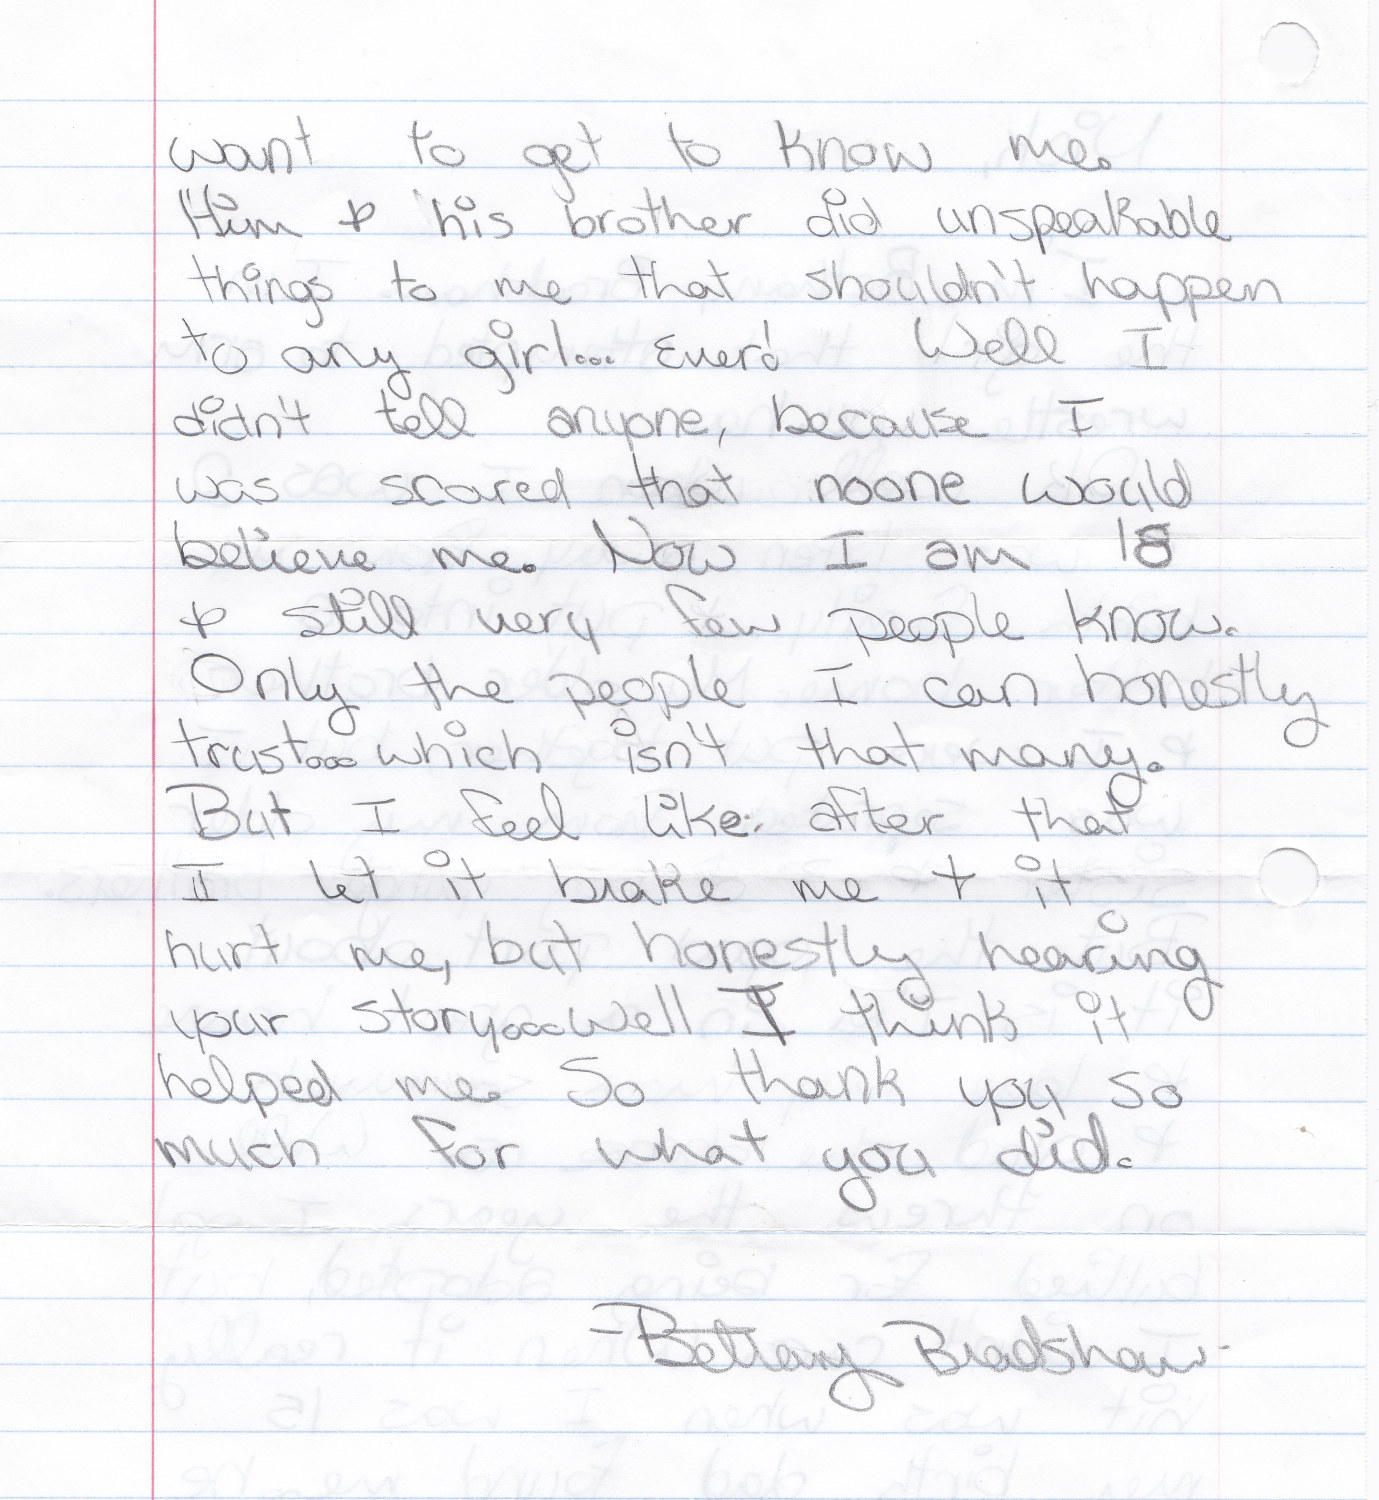 want to get to know me.
Him & his brother did unspeakable
things to me that shouldn't happen
to any girl... Ever! Well I
didn't tell anyone, because I
was scared that noone would
believe me. Now I am 18
& still very few people know.
Only the people I can honestly
trust... which isn't that many.
But I feel like after that
I let it brake me + it
hurt me, but honestly hearing
your story... well I think it
helped me. So thank you so
much for what you did.
-Bethany Bradshaw-